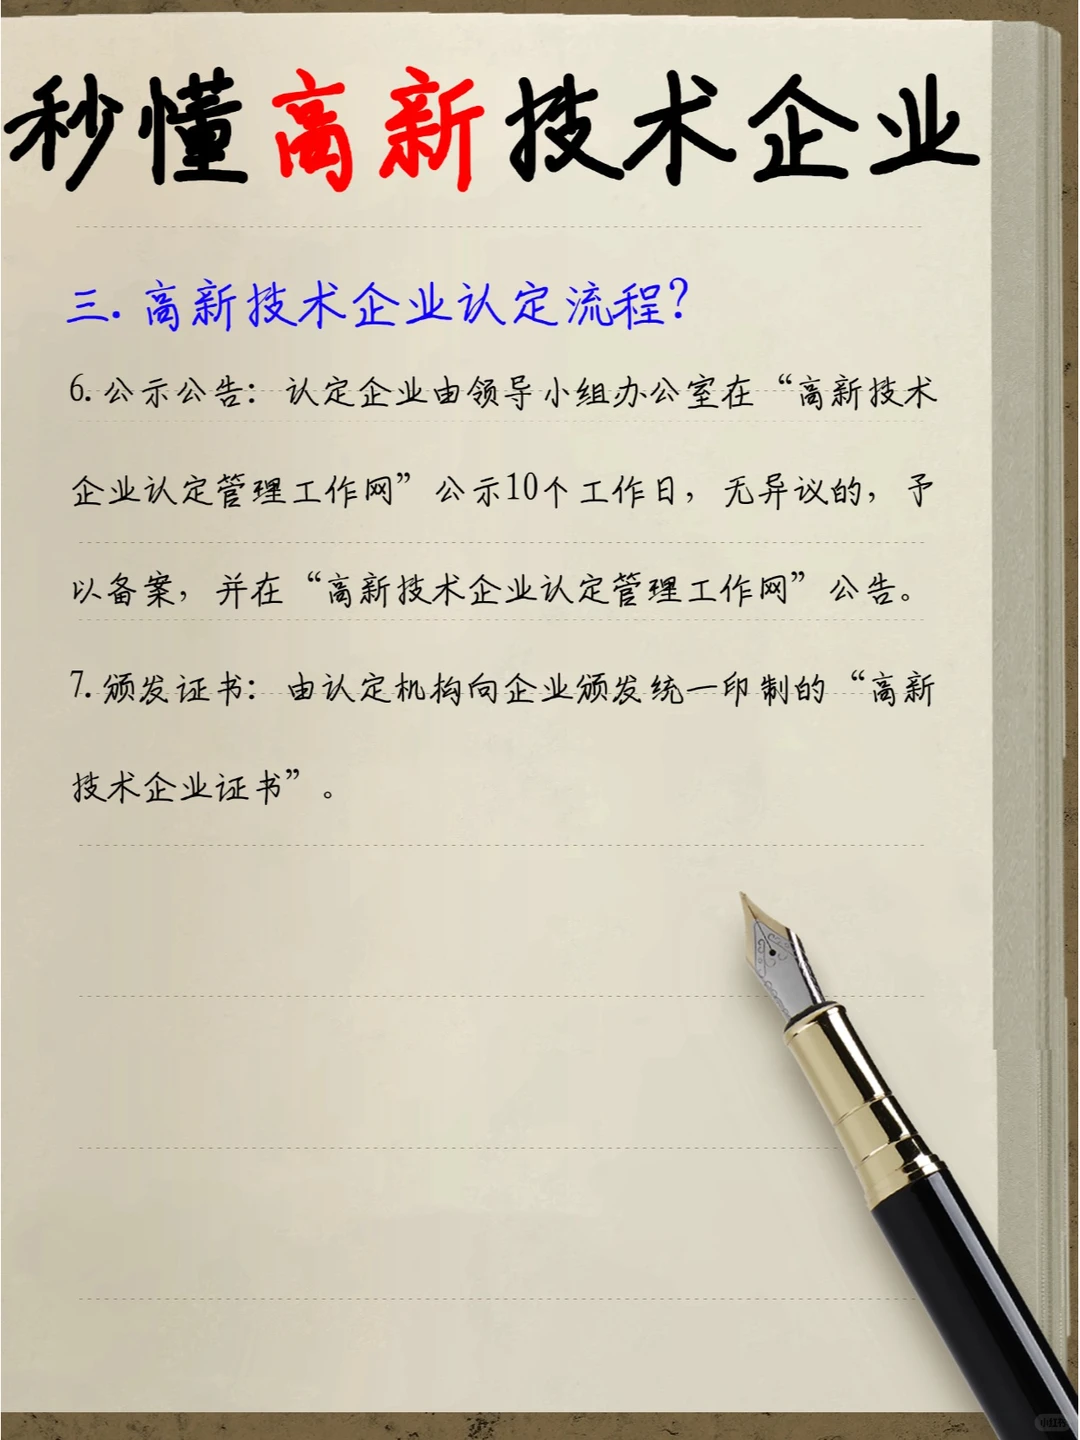 秒懂高新技术企业
三.高新技术企业认定流程?
6.公示公告：认定企业由领导小组办公室在“高新技术
企业认定管理工作网”公示10个工作日，无异议的，予
以备案，并在“高新技术企业认定管理工作网”公告。
7.颁发证书：由认定机构向企业颁发统一印制的“高新
技术企业证书”。
小红书